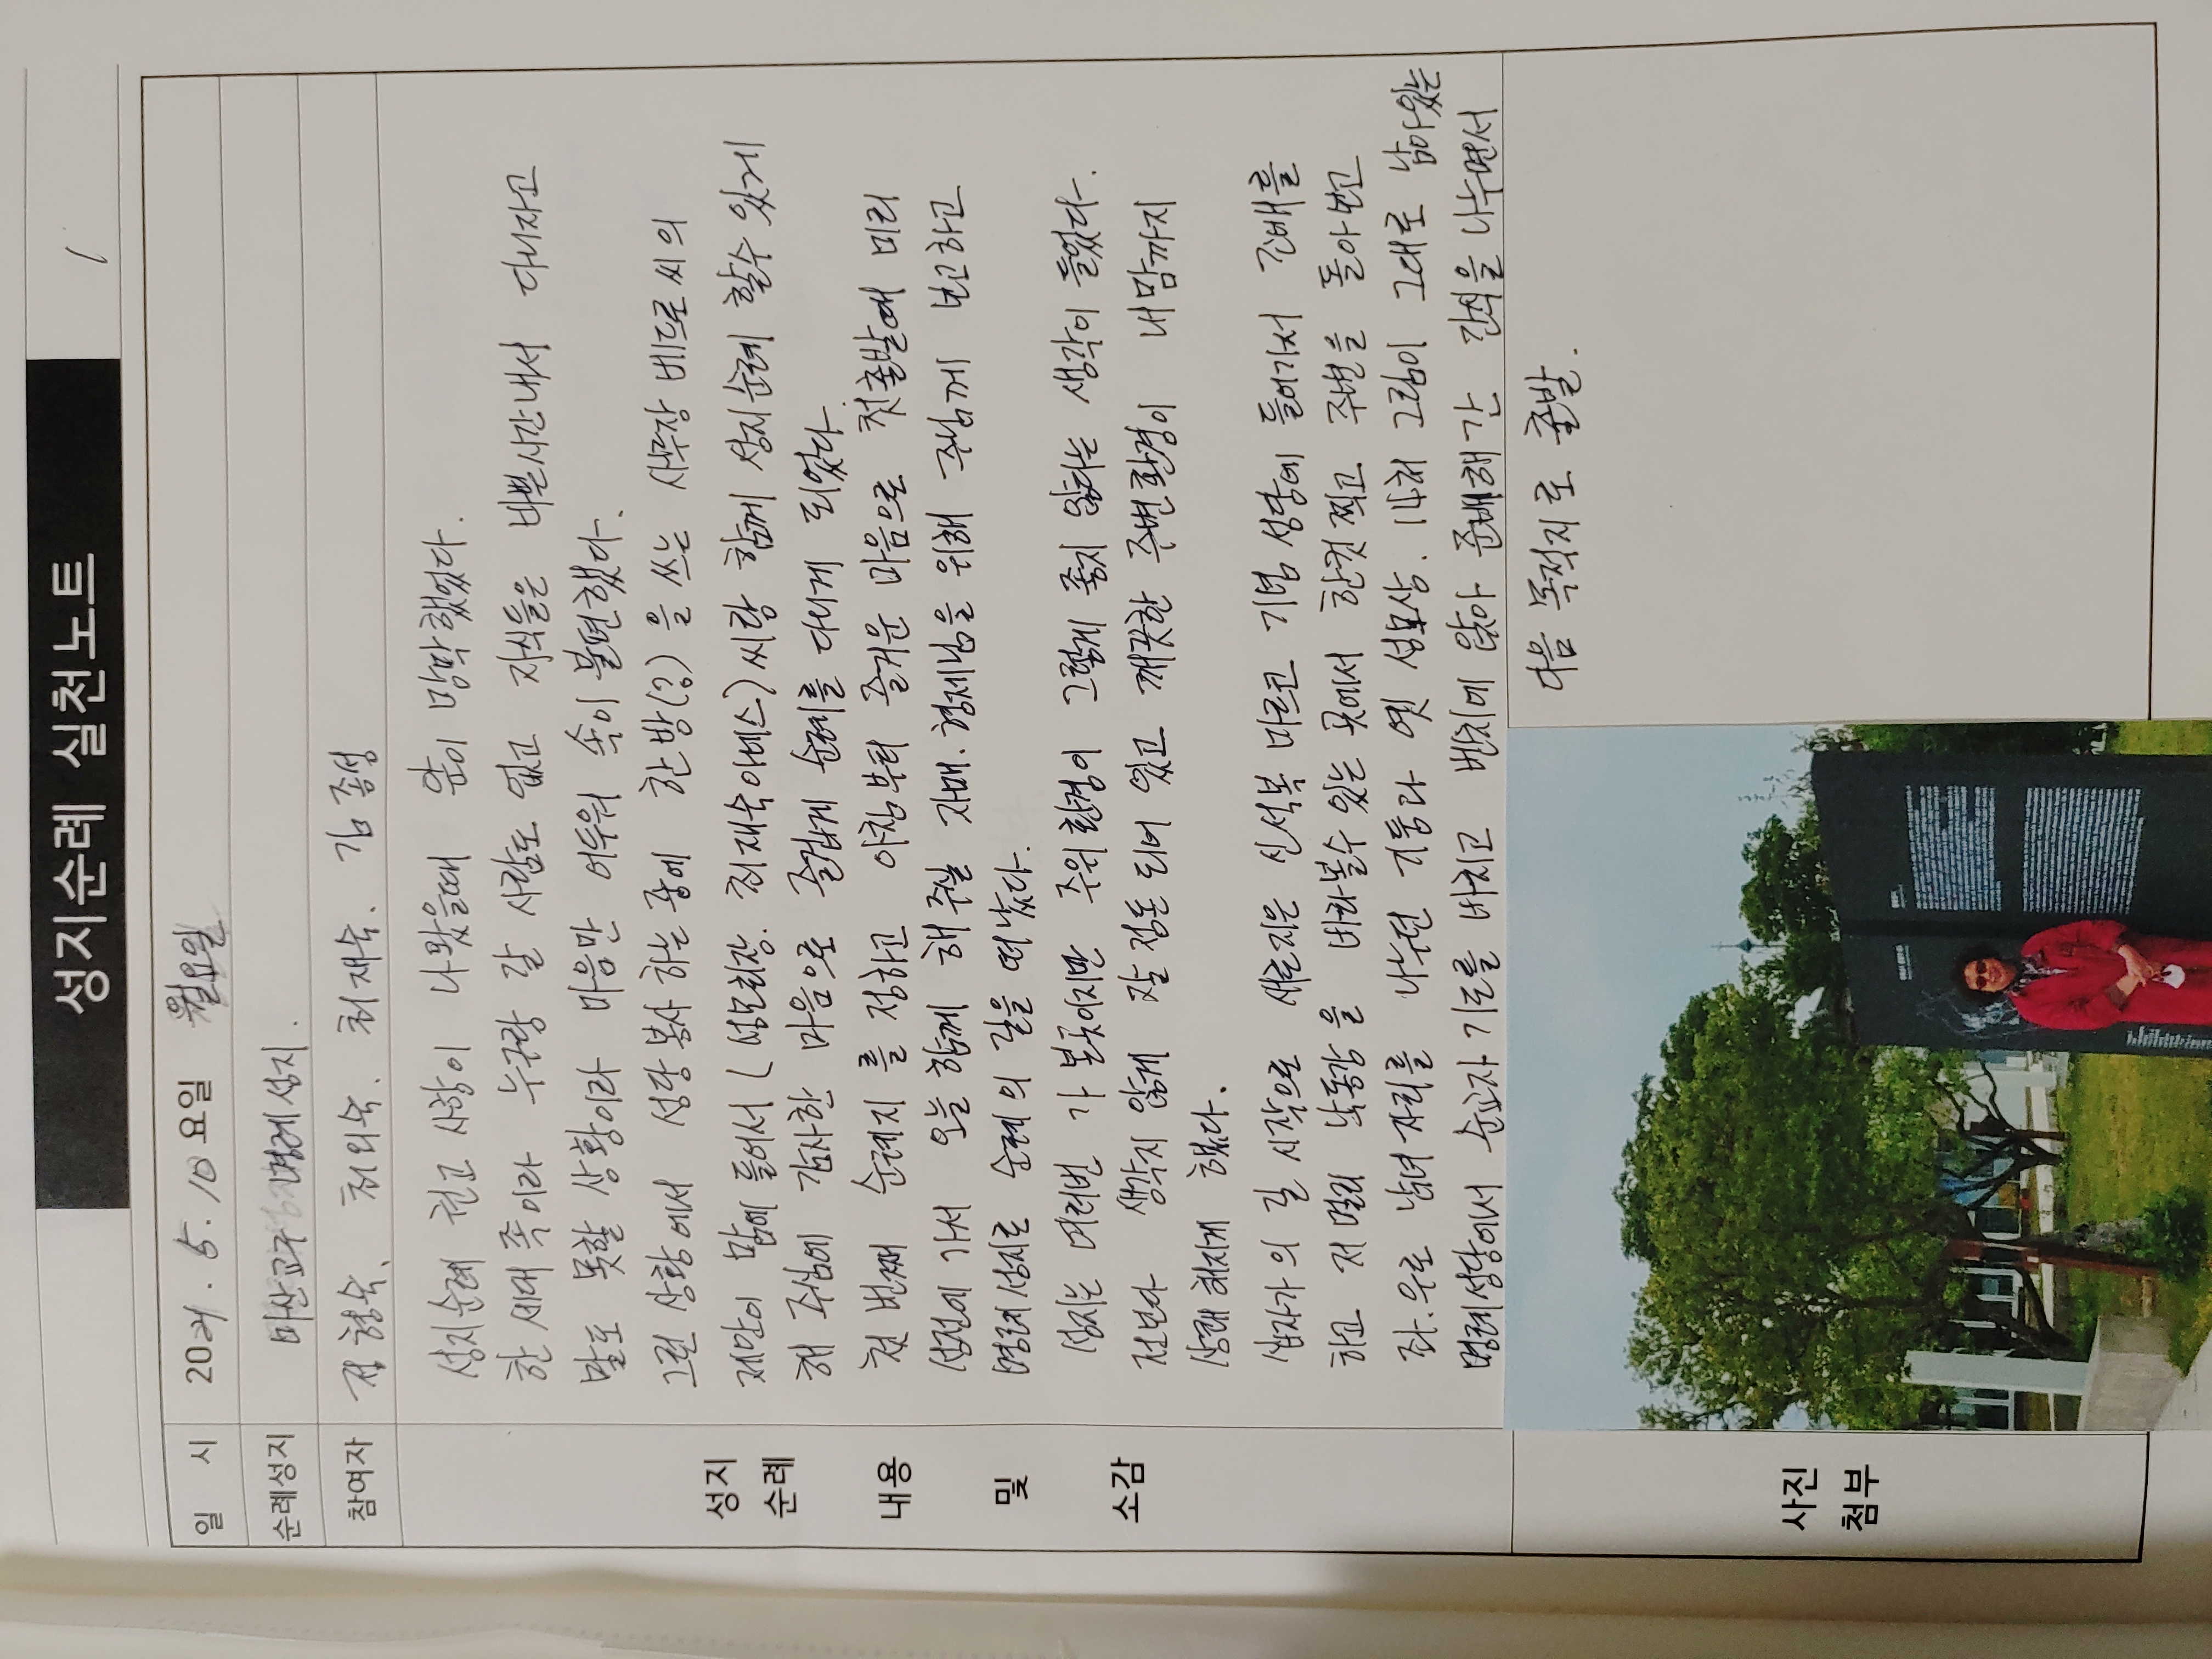 성지순례 실천노트
1
일 시 2021. 5. 10 요일 월요일
순례성지 마산교구 명례성지.
참여자 정형숙, 최외숙. 최재숙. 김종성
성지순례 권고 사항이 나왔을때 앞이 망막했었다.
한 세대 족이라 누구랑 갈 사람도 없고 자식들은 바쁜시간내서 다니자고
말도 못할 상황이라 마음만 어두워 속이 불편했다.
그런 상황에서 성당봉사 하는 중에 한방(?)을 쓰는 사무장 베드로씨의
제안이 맘에 들어서 (성모회장. 최재숙아네스)씨랑 함께 성지순례 할수 있게
해 주심에 감사한 마음으로 즐겁게 순례를 다니게 되었다.
첫 번째 순례지를 정하고 아침부터 즐거운 마음으로 첫출발때 미리
성전에 가서 오늘 함께 해주실 자매.형제님을 위해 주님께 보고하고
명례성지로 순례의 길을 떠났다.
성지는 여러번 가 본곳이지만 주위환경이 그렇게 좋지 않다는 생각이 들었다.
전보다 생각지 않게 잘 정돈 되어 있고 깨끗한 주변환경이 내맘까지
상쾌해지게 했다.
십자가의 길 시작으로 새로지은 신석복 마르코 기념 성당에 들어가서 조배를
하고 저 멀리 낙동강을 바라볼수 있는 곳에서 한컷 찍고 주변을 돌아보고
좌.우로 남녀자리를 나누던 기둥과 옛 성모상. 14처 그림이 그대로 남아있는
명례성당에서 순교자 기도를 바치고 벤치에 앉아 준비해 간 간식을 나누면서
다음 목적지로 출발.
성지
순례
내용
및
소감
사진
첨부